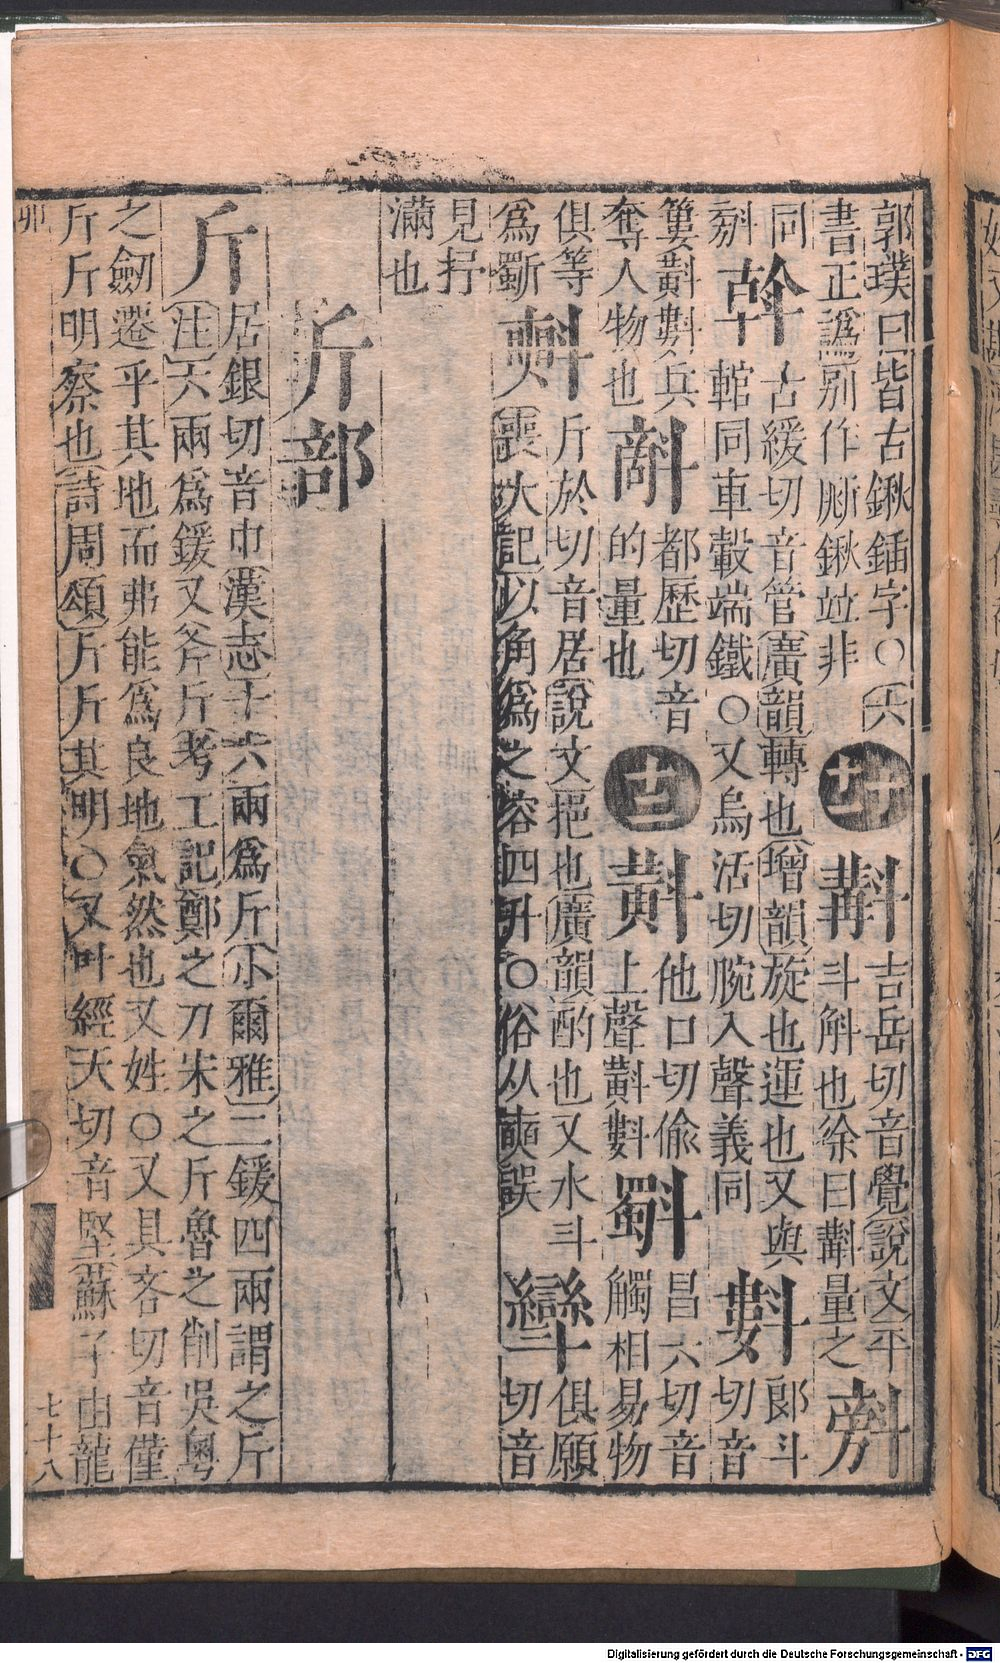 郭璞曰皆古鍬鍤字○六
書正譌別作㫁鍬竝非
斠
吉岳切音覺說文平
斗斛也徐曰斠量之
同
斡
古緩切音管廣韻轉也增韻旋也運也又與
輨同車轂端鐵○又烏活切腕入聲義同
㪹
郎斗
切音
簍斢㪹兵
奪人物也
都歷切音
的量也
十二
斢
他口切偷
上聲斢㪹
斣
昌六切音
觸相易物
俱等
爲斣
斤於切音居說文挹也廣韻酌也又水斗
喪大記以角爲之容四升○俗从誤
㪻
俱願
切音
見抒
滿也
斤部
斤
居銀切音巾漢志十六兩爲斤小爾雅二鍰四兩謂之斤
注六兩爲鍰又斧斤考工記鄭之刀宋之斤魯之削吳粵
之劒遷乎其地而弗能爲良地氣然也又姓○又具吝切音僅
斤斤明察也詩周頌斤斤其明○又叶經天切音堅蘇子由龍
卯
七十八
Digitalisierung gefördert durch die Deutsche Forschungsgemeinschaft - DFG